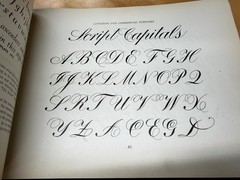 Script Capitals
A B C D E F G H
I J K L M N O P Q
S R T U V W X
Y Z A C E G D